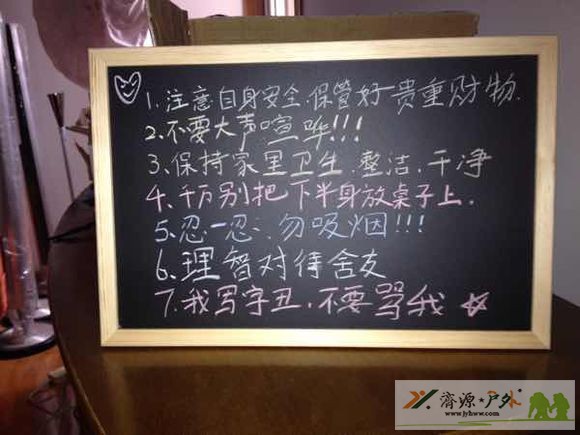 1.注意自身安全.保管好贵重财物.
2.不要大声喧哗!!!
3.保持家里卫生.整洁.干净
4.千万别把下半身放桌子上.
5.忍一忍:勿吸烟!!!
6.理智对待舍友
7.我写字丑,不要骂我
济源·户外
www.jyhww.com